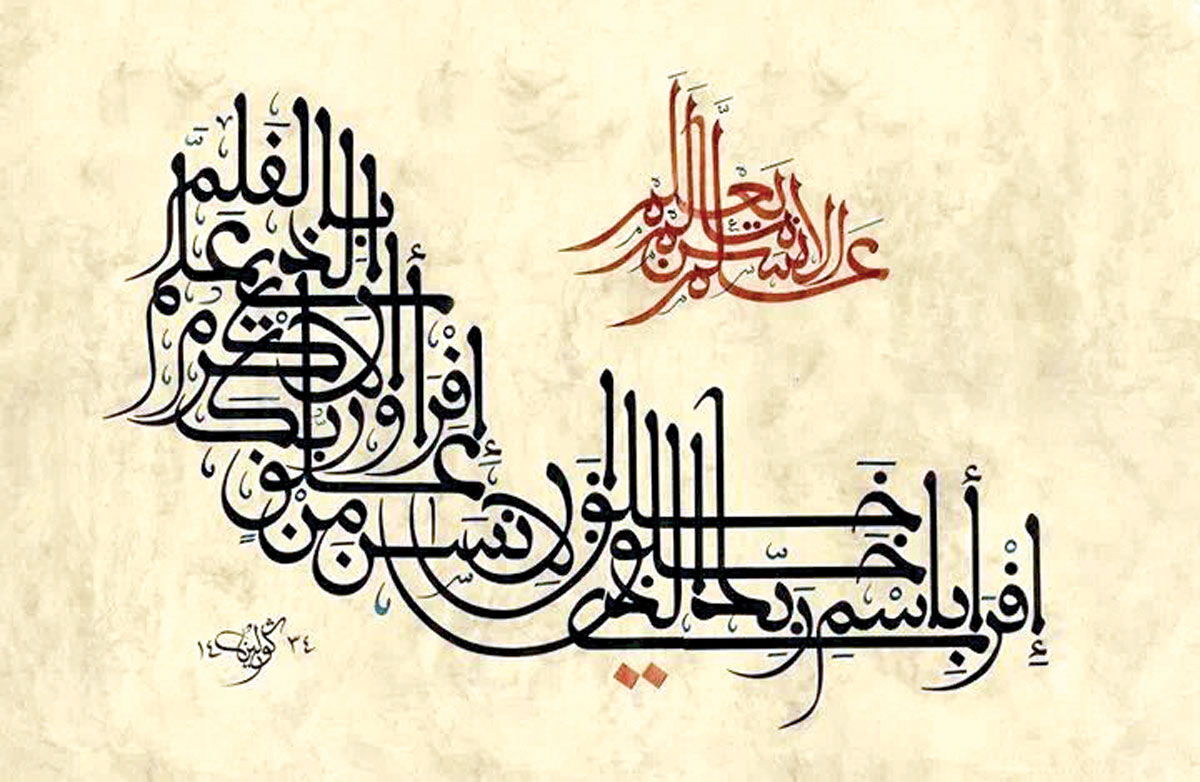 إِقْرَأْ بِاسْمِ رَبِّكَ الَّذِي خَلَقَ
خَلَقَ الْإِنْسَنَ مِنْ عَلَقٍ
إِقْرَأْ وَرَبُّكَ الْأَكْرَمُ
الَّذِي عَلَّمَ بِالْقَلَمِ
عَلَّمَ الْإِنْسَنَ مَا لَمْ يَعْلَمْ
١٤٣٤